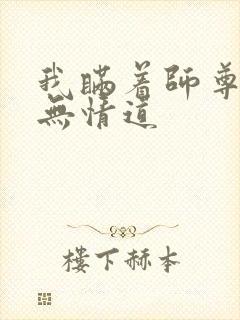 我瞞着師尊
無情道
樓下赫本